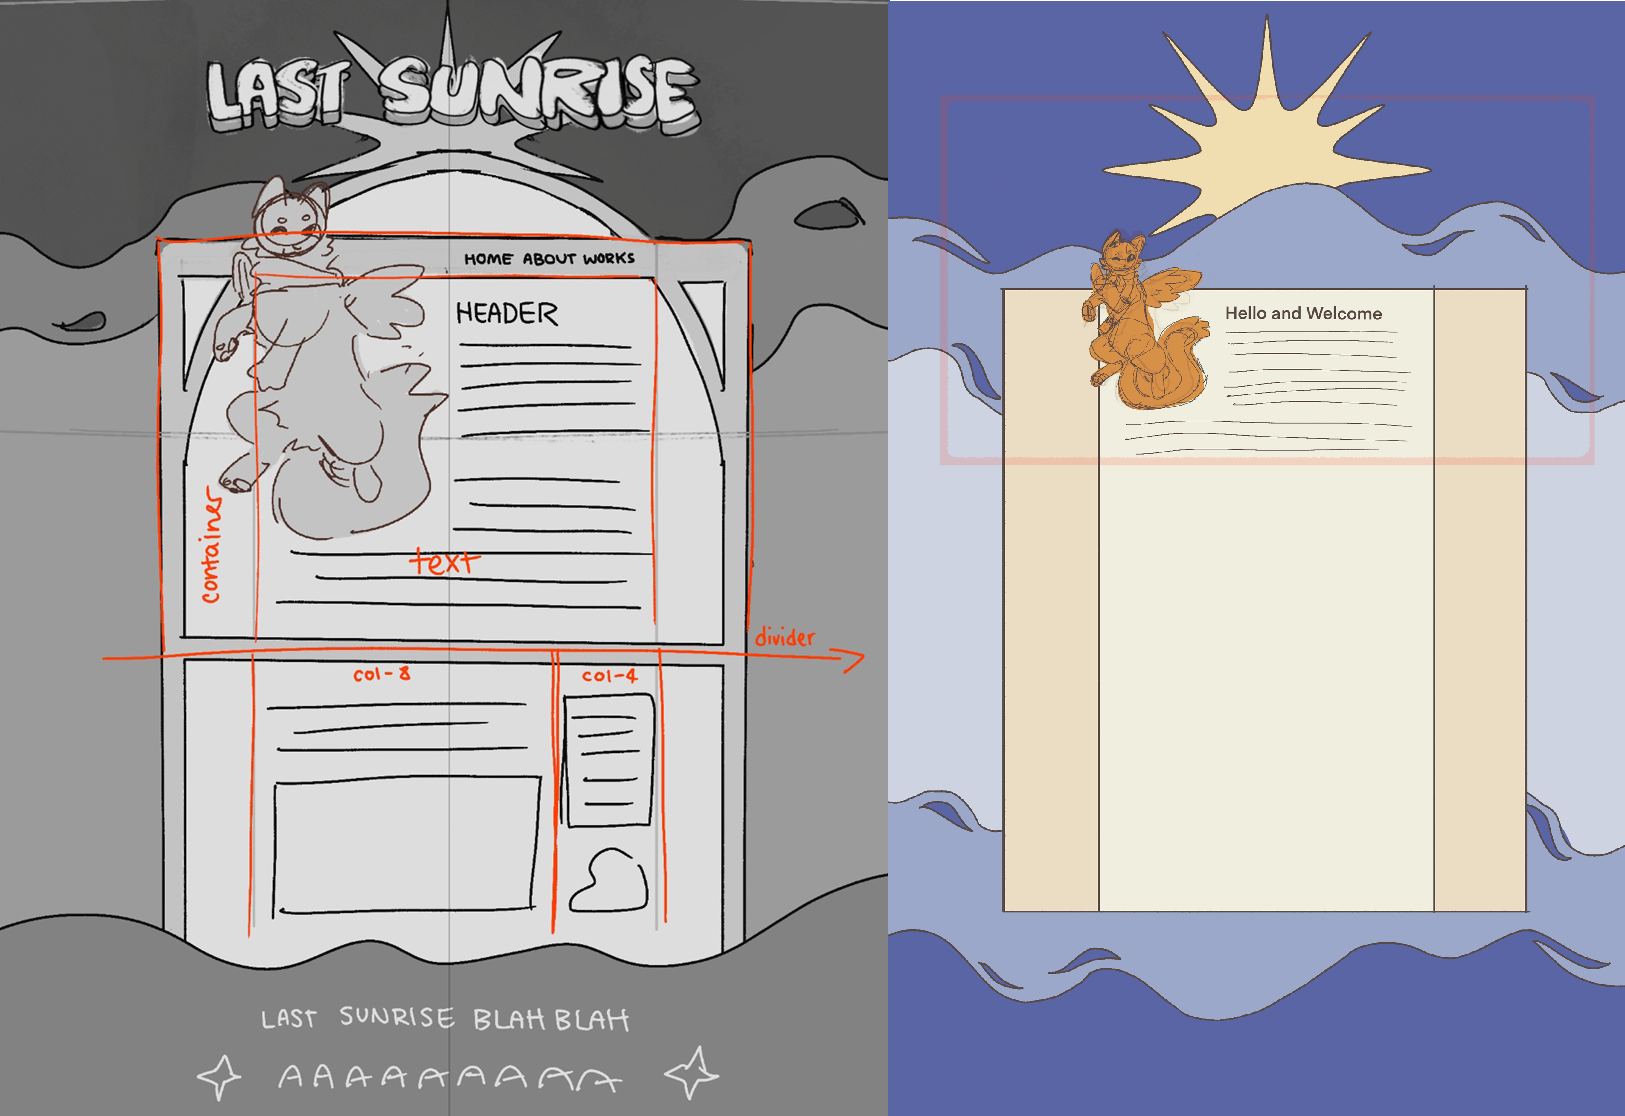 LAST SUNRISE
HOME ABOUT WORKS
HEADER
container
text
divider
col-8
col-4
LAST SUNRISE BLAH BLAH
AAAAAAAAAA
Hello and Welcome